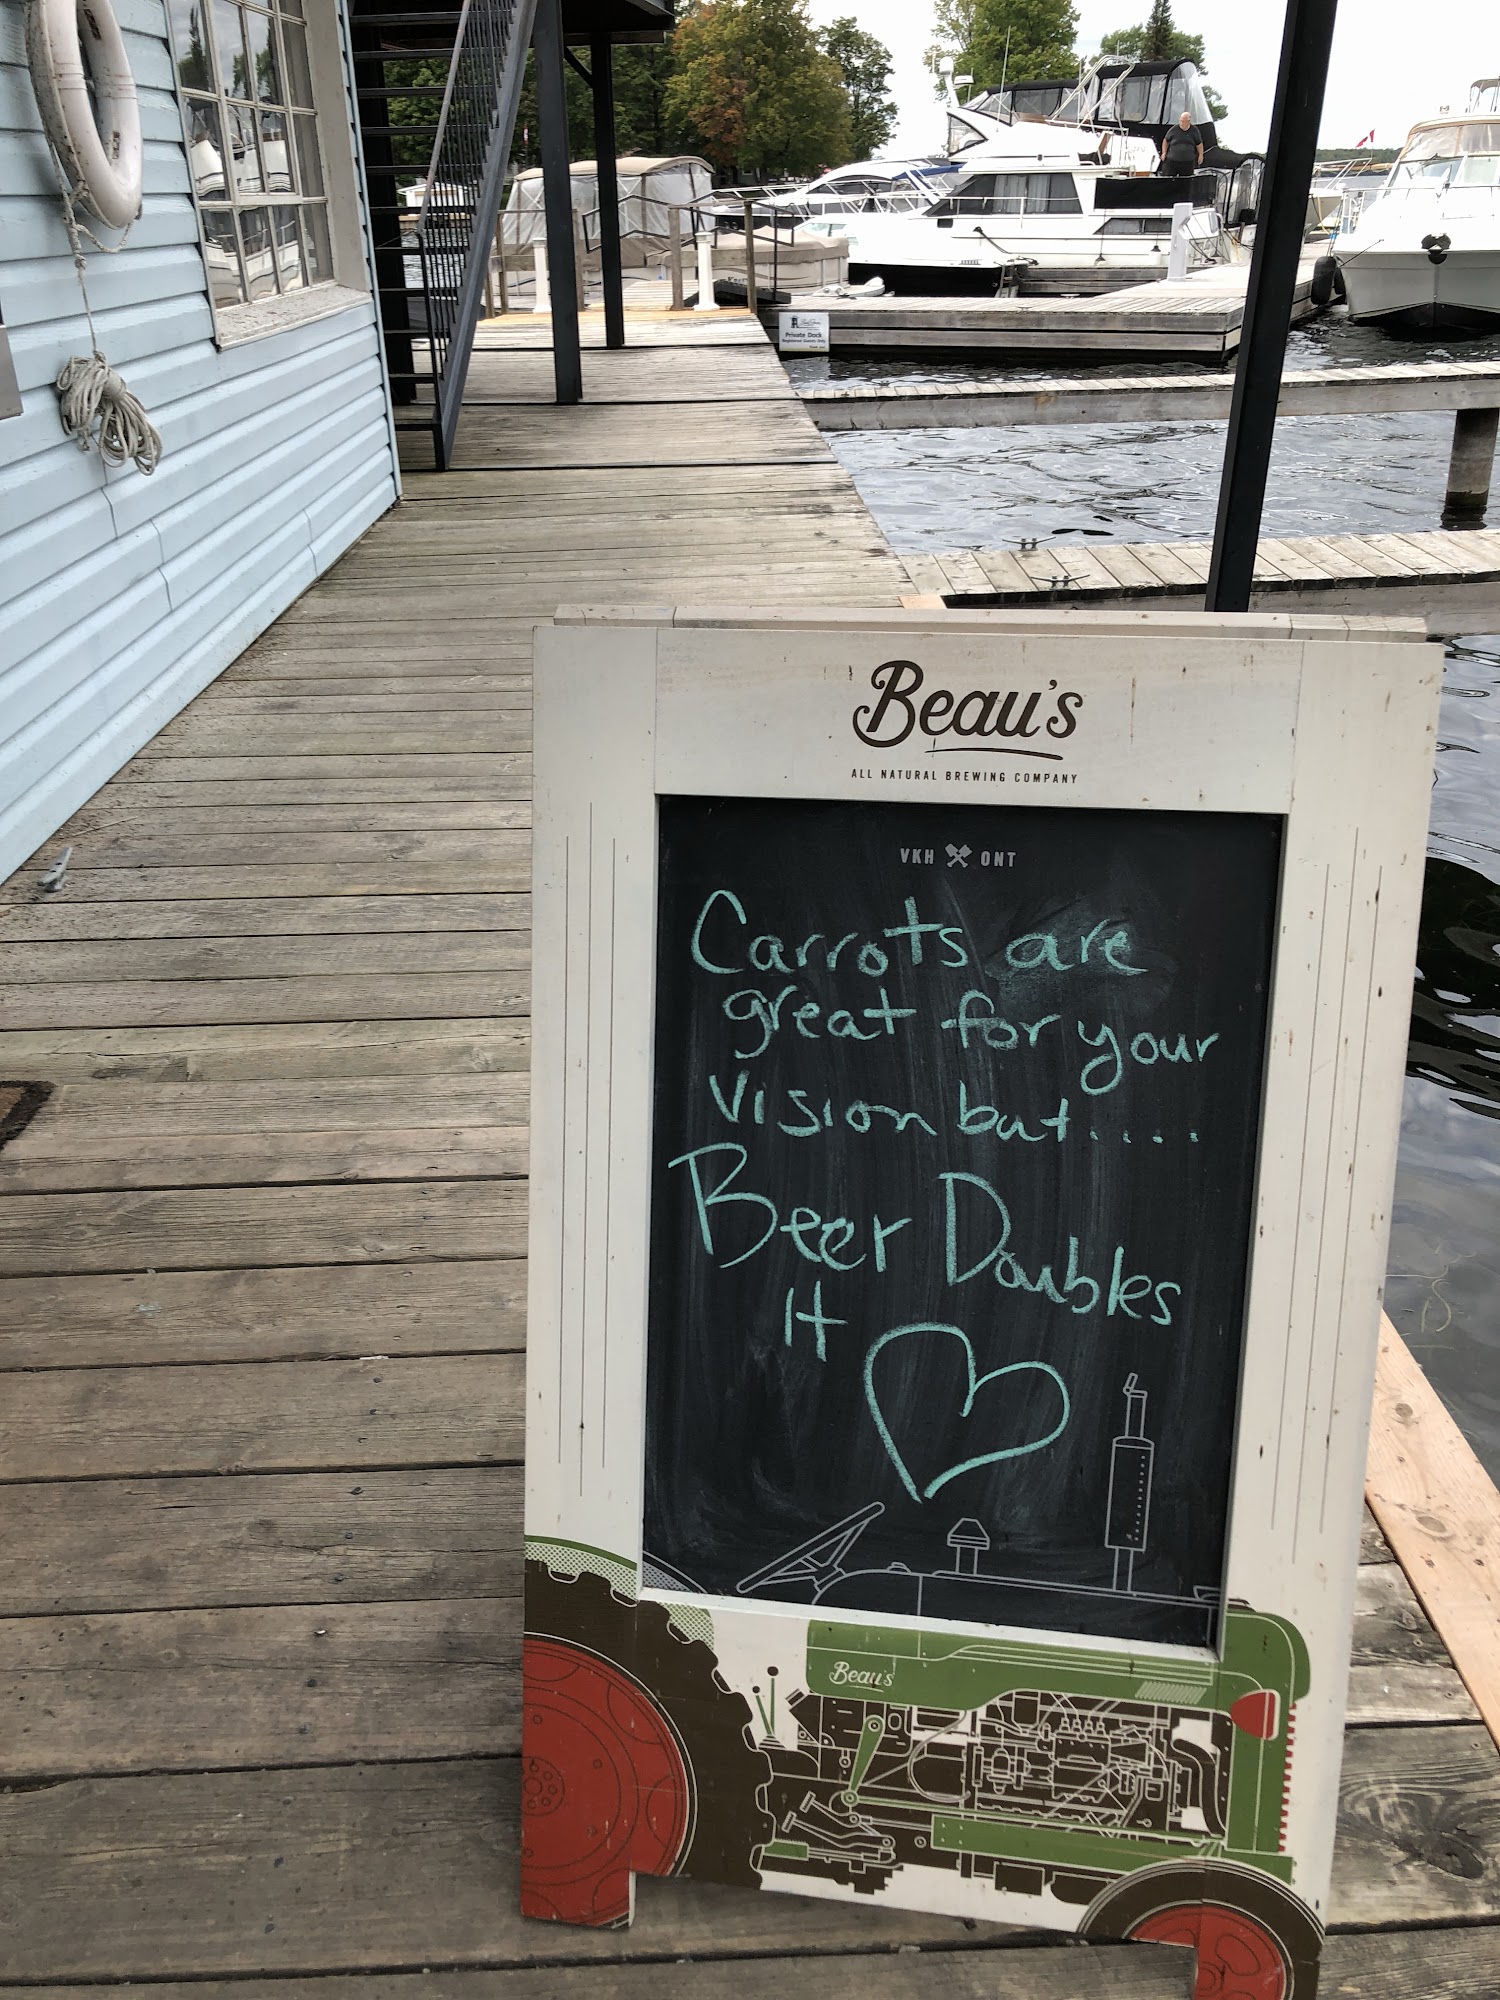 Private Dock
Registered Guests Only
Beau's
ALL NATURAL BREWING COMPANY
VKH ONT
Carrots are
great for your
vision but.....
Beer Doubles
It
Beau's